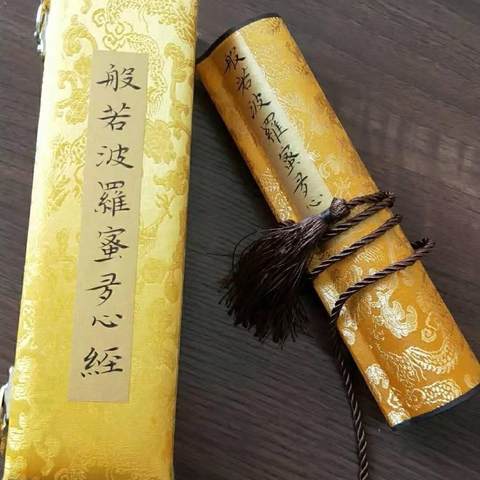 般若波羅蜜多心經
般若波羅蜜多心